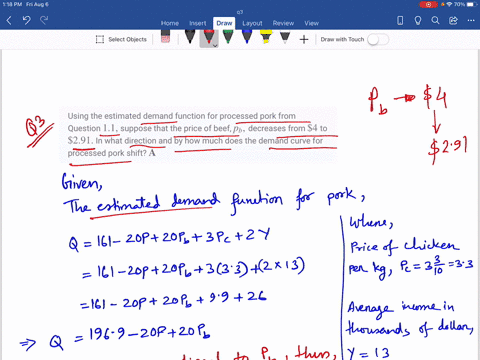 1:18 PM Fri Aug 6
70%
Home Insert Draw Layout Review View
Select Objects
Draw with Touch
Q3
Using the estimated demand function for processed pork from
Question 1.1, suppose that the price of beef, pb, decreases from $4 to
$2.91. In what direction and by how much does the demand curve for
processed pork shift? A
Pb → $4
↓
$2.91
Given,
The estimated demand function for pork,
Q = 161 - 20P + 20Pb + 3Pc + 2Y
= 161 - 20P + 20Pb + 3(3.3) + (2×13)
= 161 - 20P + 20Pb + 9.9 + 26
⇒ Q = 196.9 - 20P + 20Pb
Where,
Price of chicken
per kg, Pc = 3 3/10 = 3.3
Average income in
thousands of dollar,
Y = 13